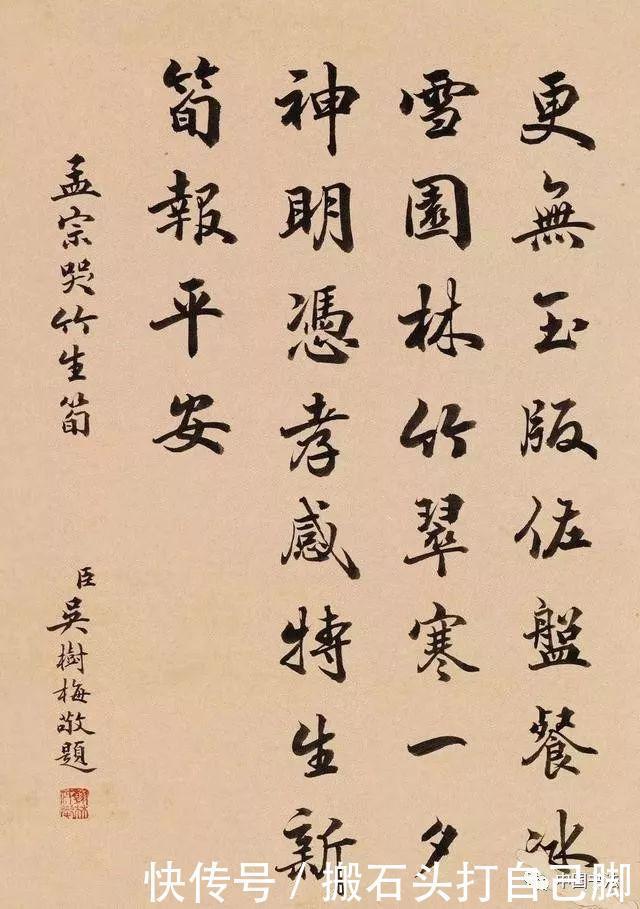 更無玉版佐盤餐冰
雪園林竹翠寒一夕
神明憑孝感特生新
筍報平安
孟宗哭竹生筍
臣吳樹梅敬題
快传号 / 搬石头打自己脚